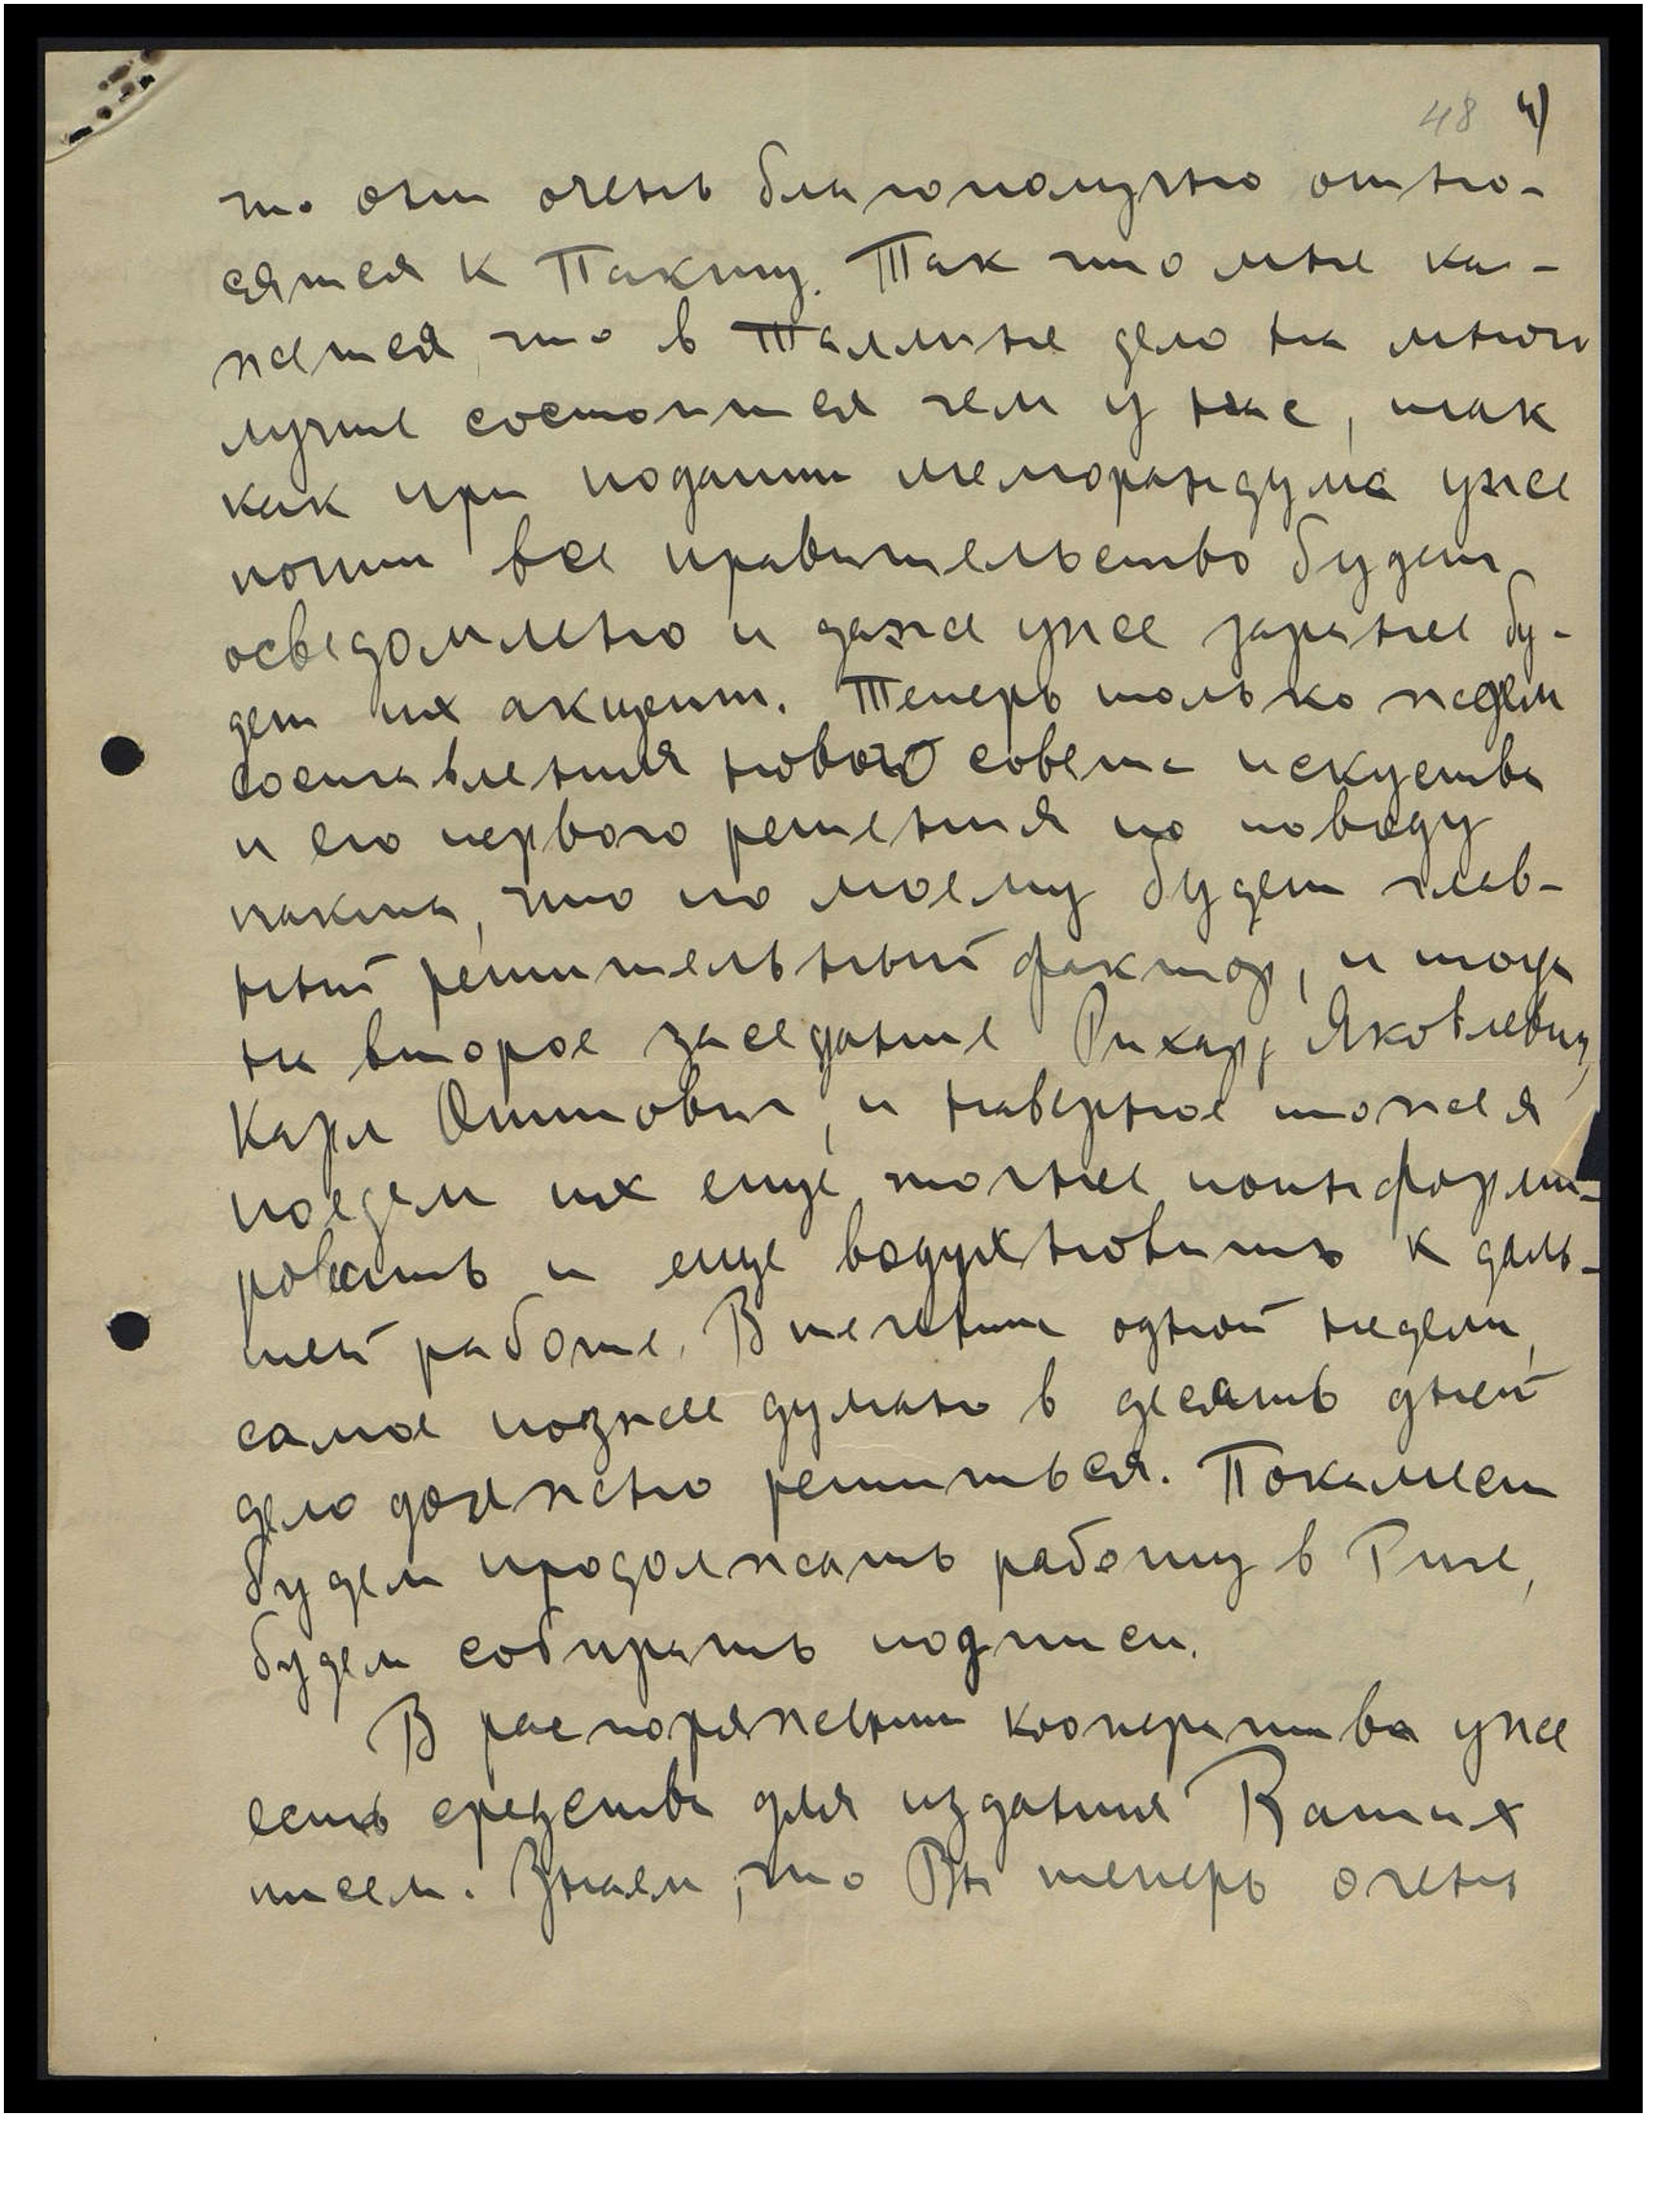 48 4)
то они очень благополучно отно-
сятся к Пакту. Так что мне ка-
жется, что в Таллине дело на много
лучше состоится чем у нас, так
как при подании меморандума уже
почти все правительство будет
осведомлено и даже уже заранее бу-
дет их акцепт. Теперь только ждем
составления нового совета искуства
и его первого решения по поводу
пакта, что по моему будет глав-
ный решительный фактор, и тогда
на второе заседание Рихард Яковлевич,
Карл Оттович, и наверное тоже я
поедем их еще точнее поинформи-
ровать и еще водухновить к даль-
шей работе. В течении одной недели,
самое позжее думаю в десять дней
дело должно решиться. Покамест
будем продолжать работу в Риге,
будем собирать подписи.
В распоряжении кооператива уже
есть средства для издания Ваших
писем. Знаем, что Вы теперь очень